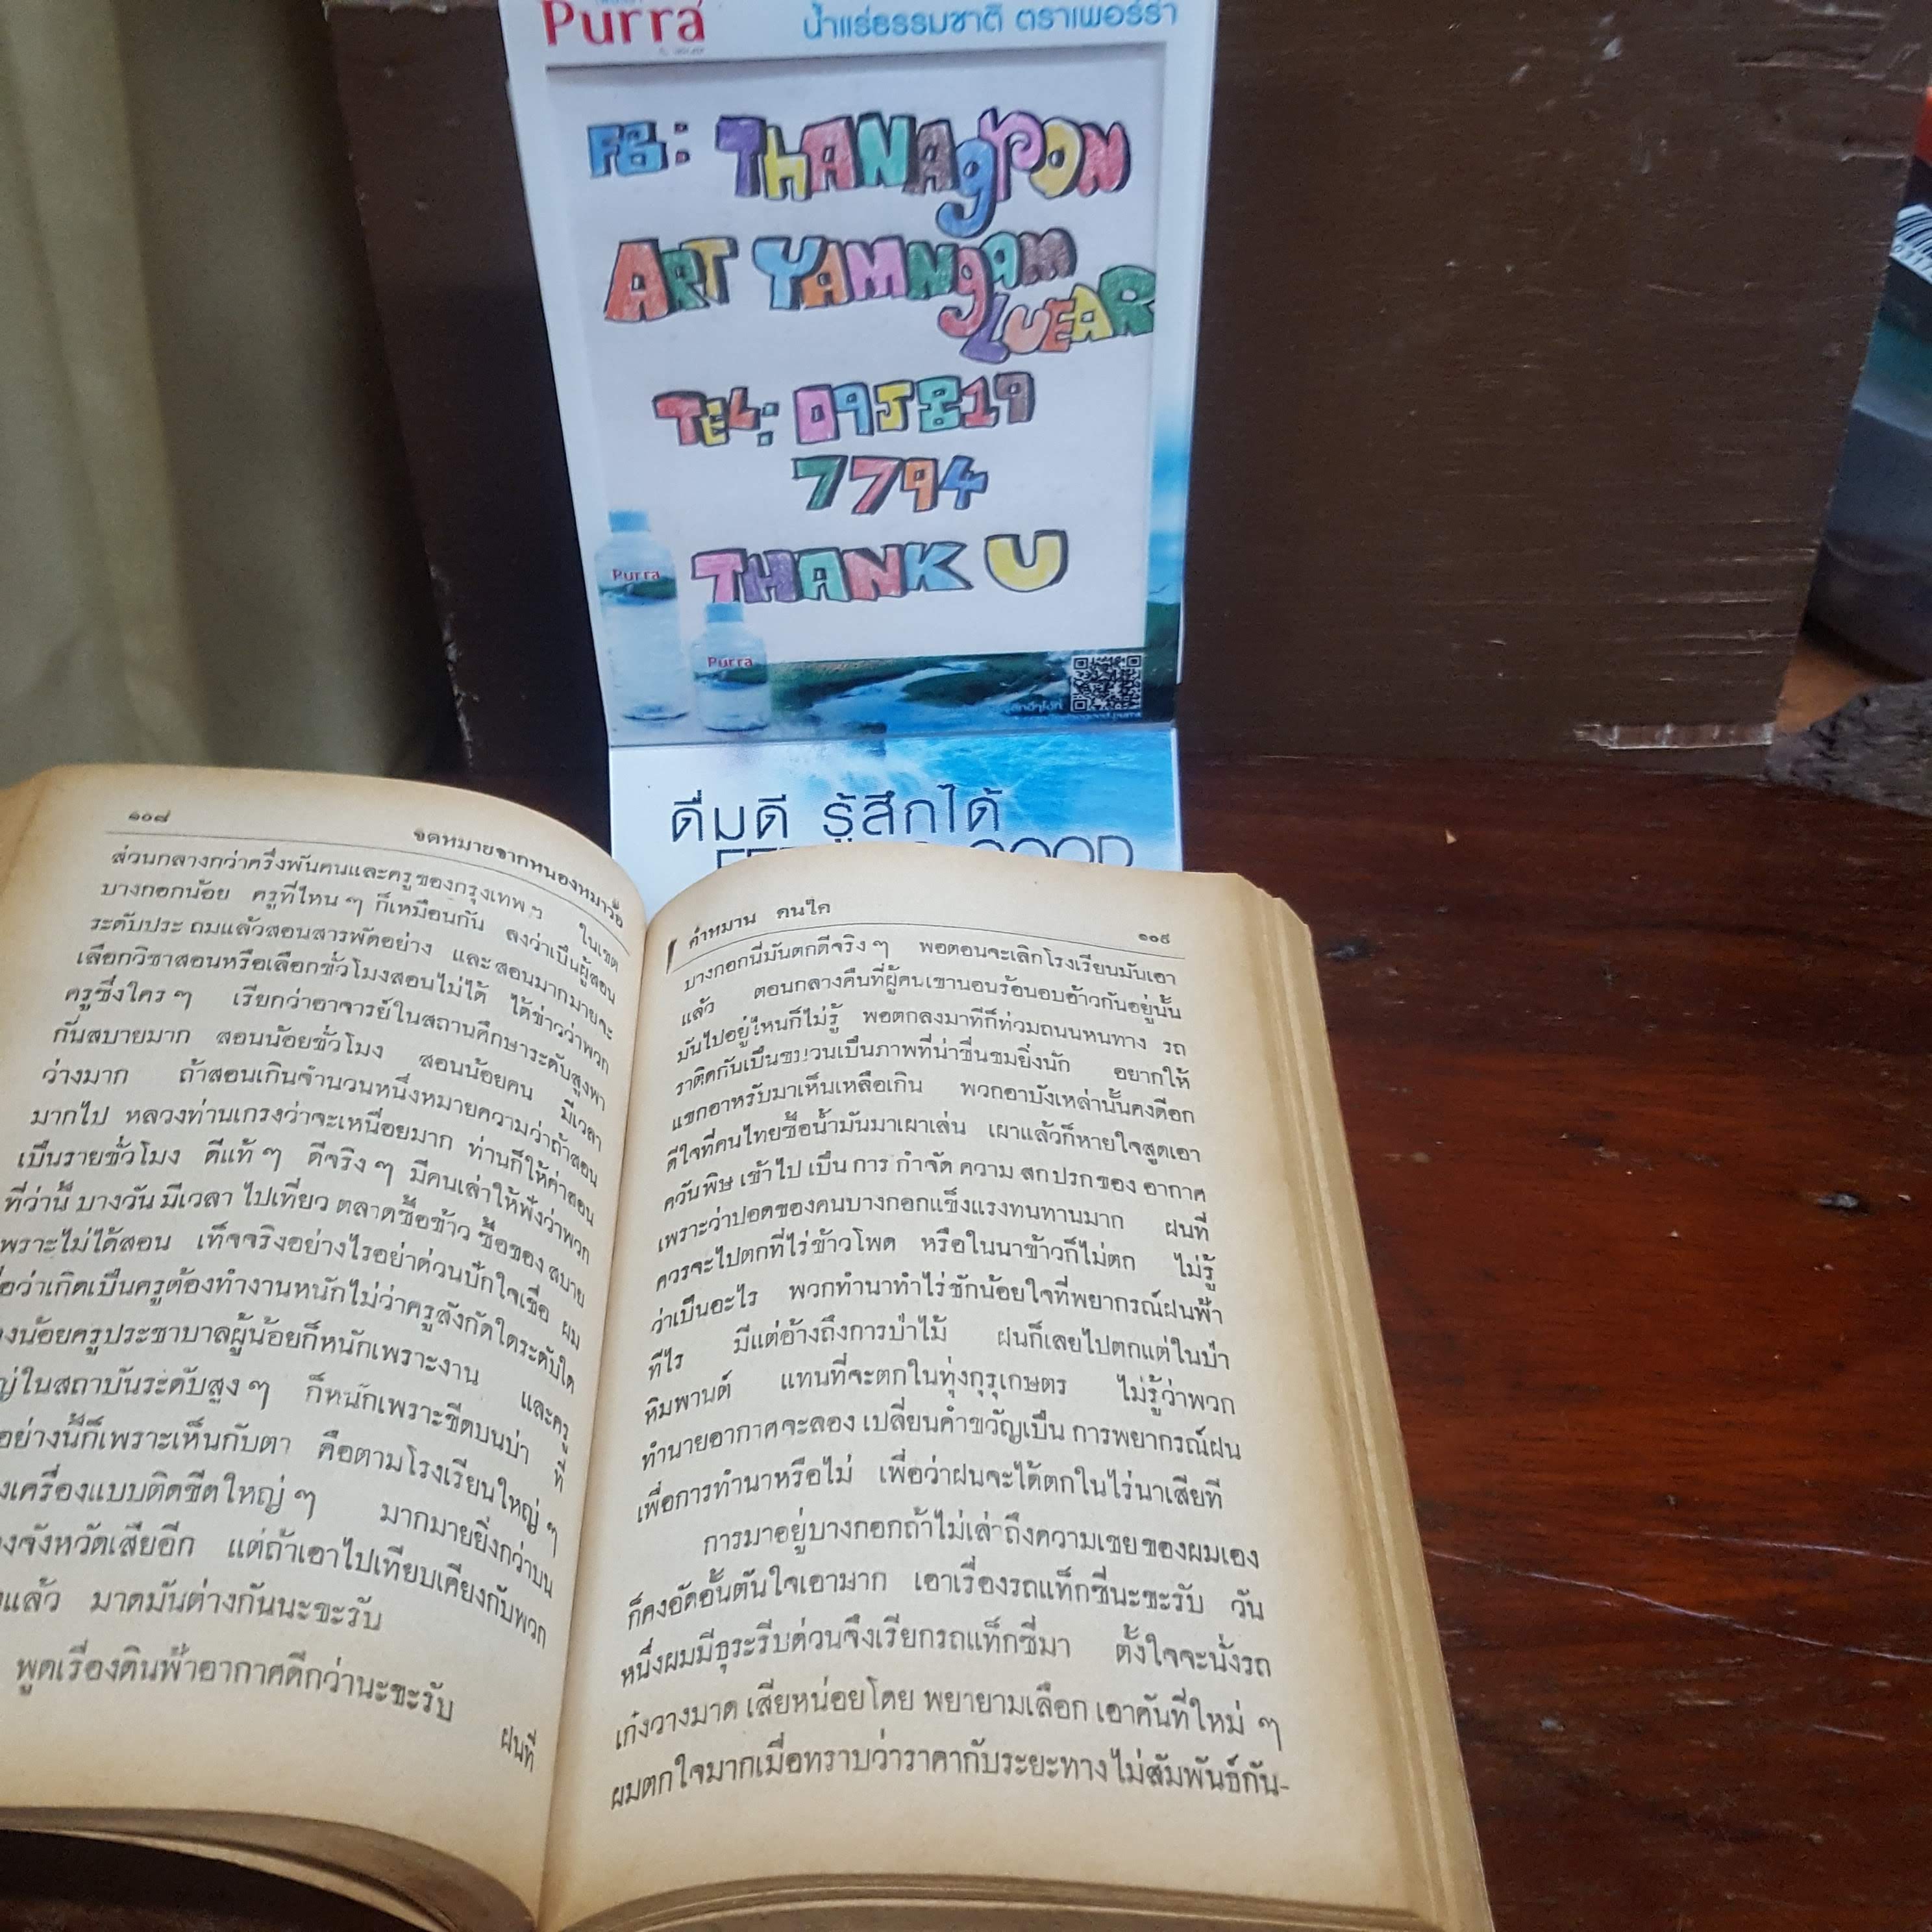 Purra
น้ำแร่ธรรมชาติ ตราเพอร์ร่า
FB: THANAgPON
ART YAMNgam
LUEAR
TEL: 095819
7794
THANK U
Purra
Purra
ดื่มดี รู้สึกได้
๑๐๘ จดหมายจากหนองหมาว้อ
ส่วนกลางกว่าครึ่งพันคนและครูของกรุงเทพ ฯ ในเขต
บางกอกน้อย ครูที่ไหน ๆ ก็เหมือนกัน ลงว่าเป็นผู้สอน
ระดับประ ถมแล้วสอนสารพัดอย่าง และสอนมากมายจะ
เลือกวิชาสอนหรือเลือกชั่วโมงสอนไม่ได้ ได้ข่าวว่าพวก
ครูซึ่งใคร ๆ เรียกว่าอาจารย์ในสถานศึกษาระดับสูงพา
กันสบายมาก สอนน้อยชั่วโมง สอนน้อยคน มีเวลา
ว่างมาก ถ้าสอนเกินจำนวนหนึ่งหมายความว่าถ้าสอน
มากไป หลวงท่านเกรงว่าจะเหนื่อยมาก ท่านก็ให้ค่าสอน
เป็นรายชั่วโมง ดีแท้ ๆ ดีจริง ๆ มีคนเล่าให้ฟังว่าพวก
ที่ว่านี้ บางวัน มีเวลา ไปเที่ยว ตลาดซื้อข้าว ซื้อของ สบาย
เพราะไม่ได้สอน เท็จจริงอย่างไรอย่าด่วนปักใจเชื่อ ผม
ว่าเกิดเป็นครูต้องทำงานหนักไม่ว่าครูสังกัดใดระดับใด
น้อยครูประชาบาลผู้น้อยก็หนักเพราะงาน และครู
ในสถาบันระดับสูง ๆ ก็หนักเพราะขีดบนบ่า ที่
อย่างนี้ก็เพราะเห็นกับตา คือตามโรงเรียนใหญ่ ๆ
เครื่องแบบติดขีดใหญ่ ๆ มากมายยิ่งกว่าบน
จังหวัดเสียอีก แต่ถ้าเอาไปเทียบเคียงกับพวก
แล้ว มาดมันต่างกันนะขะรับ
พูดเรื่องดินฟ้าอากาศดีกว่านะขะรับ ฝนที่
คำหมาน คนไค ๑๐๙
บางกอกนี่มันตกดีจริง ๆ พอตอนจะเลิกโรงเรียนมันเอา
แล้ว ตอนกลางคืนที่ผู้คนเขานอนร้อนอบอ้าวกันอยู่นั้น
มันไปอยู่ไหนก็ไม่รู้ พอตกลงมาทีก็ท่วมถนนหนทาง รถ
ราติดกันเป็นขบวนเป็นภาพที่น่าชื่นชมยิ่งนัก อยากให้
แขกอาหรับมาเห็นเหลือเกิน พวกอาบังเหล่านั้นคงดีอก
ดีใจที่คนไทยซื้อน้ำมันมาเผาเล่น เผาแล้วก็หายใจสูดเอา
ควันพิษ เข้าไป เป็น การ กำจัด ความ สกปรกของ อากาศ
เพราะว่าปอดของคนบางกอกแข็งแรงทนทานมาก ฝนที่
ควรจะไปตกที่ไร่ข้าวโพด หรือในนาข้าวก็ไม่ตก ไม่รู้
ว่าเป็นอะไร พวกทำนาทำไร่ชักน้อยใจที่พยากรณ์ฝนฟ้า
ทีไร มีแต่อ้างถึงการป่าไม้ ฝนก็เลยไปตกแต่ในป่า
หิมพานต์ แทนที่จะตกในทุ่งกุรุเกษตร ไม่รู้ว่าพวก
ทำนายอากาศจะลอง เปลี่ยนคำขวัญเป็น การพยากรณ์ฝน
เพื่อการทำนาหรือไม่ เพื่อว่าฝนจะได้ตกในไร่นาเสียที
การมาอยู่บางกอกถ้าไม่เล่าถึงความเชย ของผมเอง
ก็คงอัดอั้นตันใจเอามาก เอาเรื่องรถแท็กซี่นะขะรับ วัน
หนึ่งผมมีธุระรีบด่วนจึงเรียกรถแท็กซี่มา ตั้งใจจะนั่งรถ
เก๋งวางมาด เสียหน่อยโดย พยายามเลือก เอาคันที่ใหม่ ๆ
ผมตกใจมากเมื่อทราบว่าราคากับระยะทางไม่สัมพันธ์กัน-